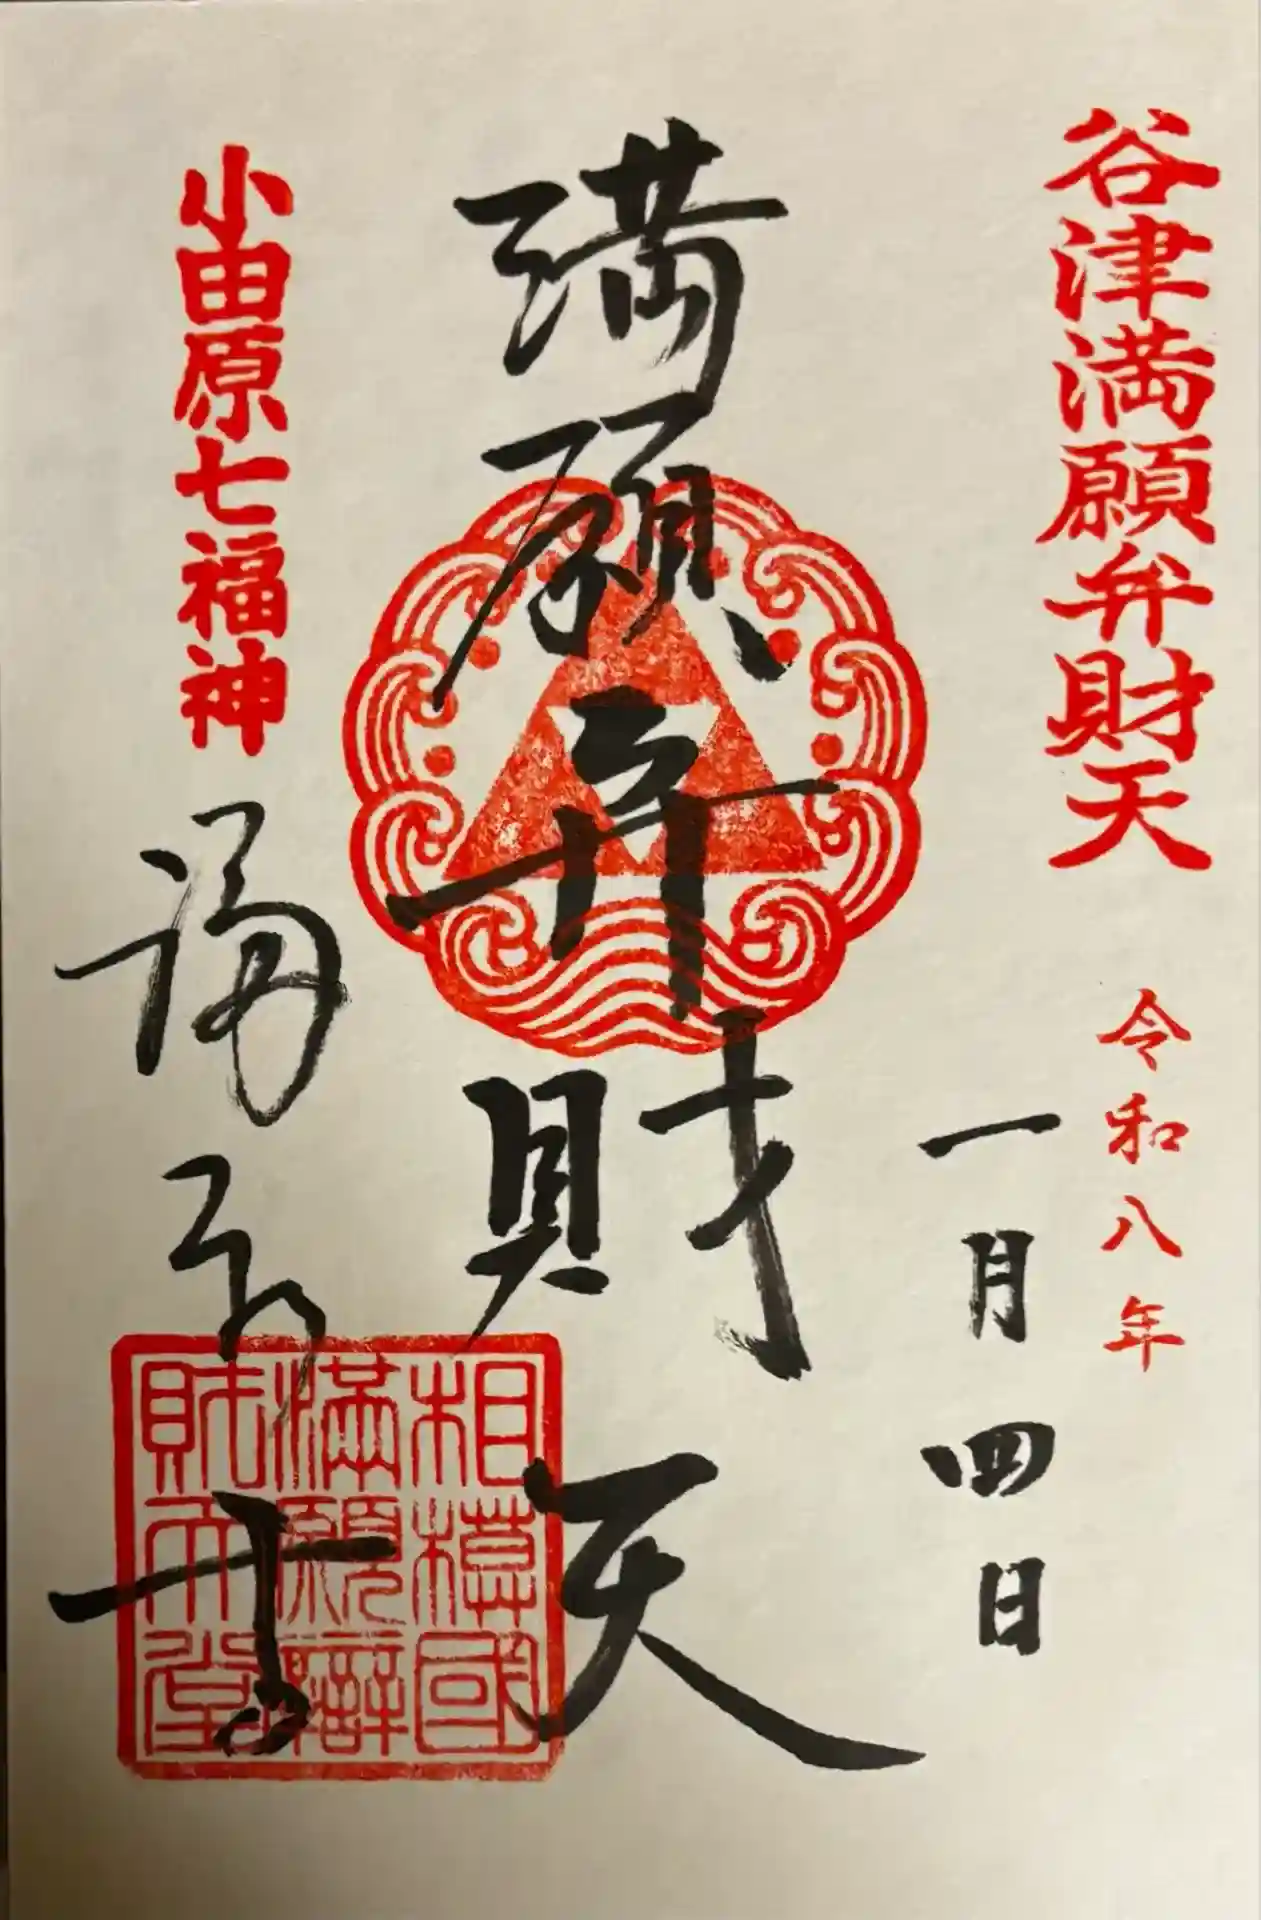 谷津満願弁財天
令和八年
一月四日
満願弁財天
小田原七福神
福泉寺
相模國
満願辯
財天堂